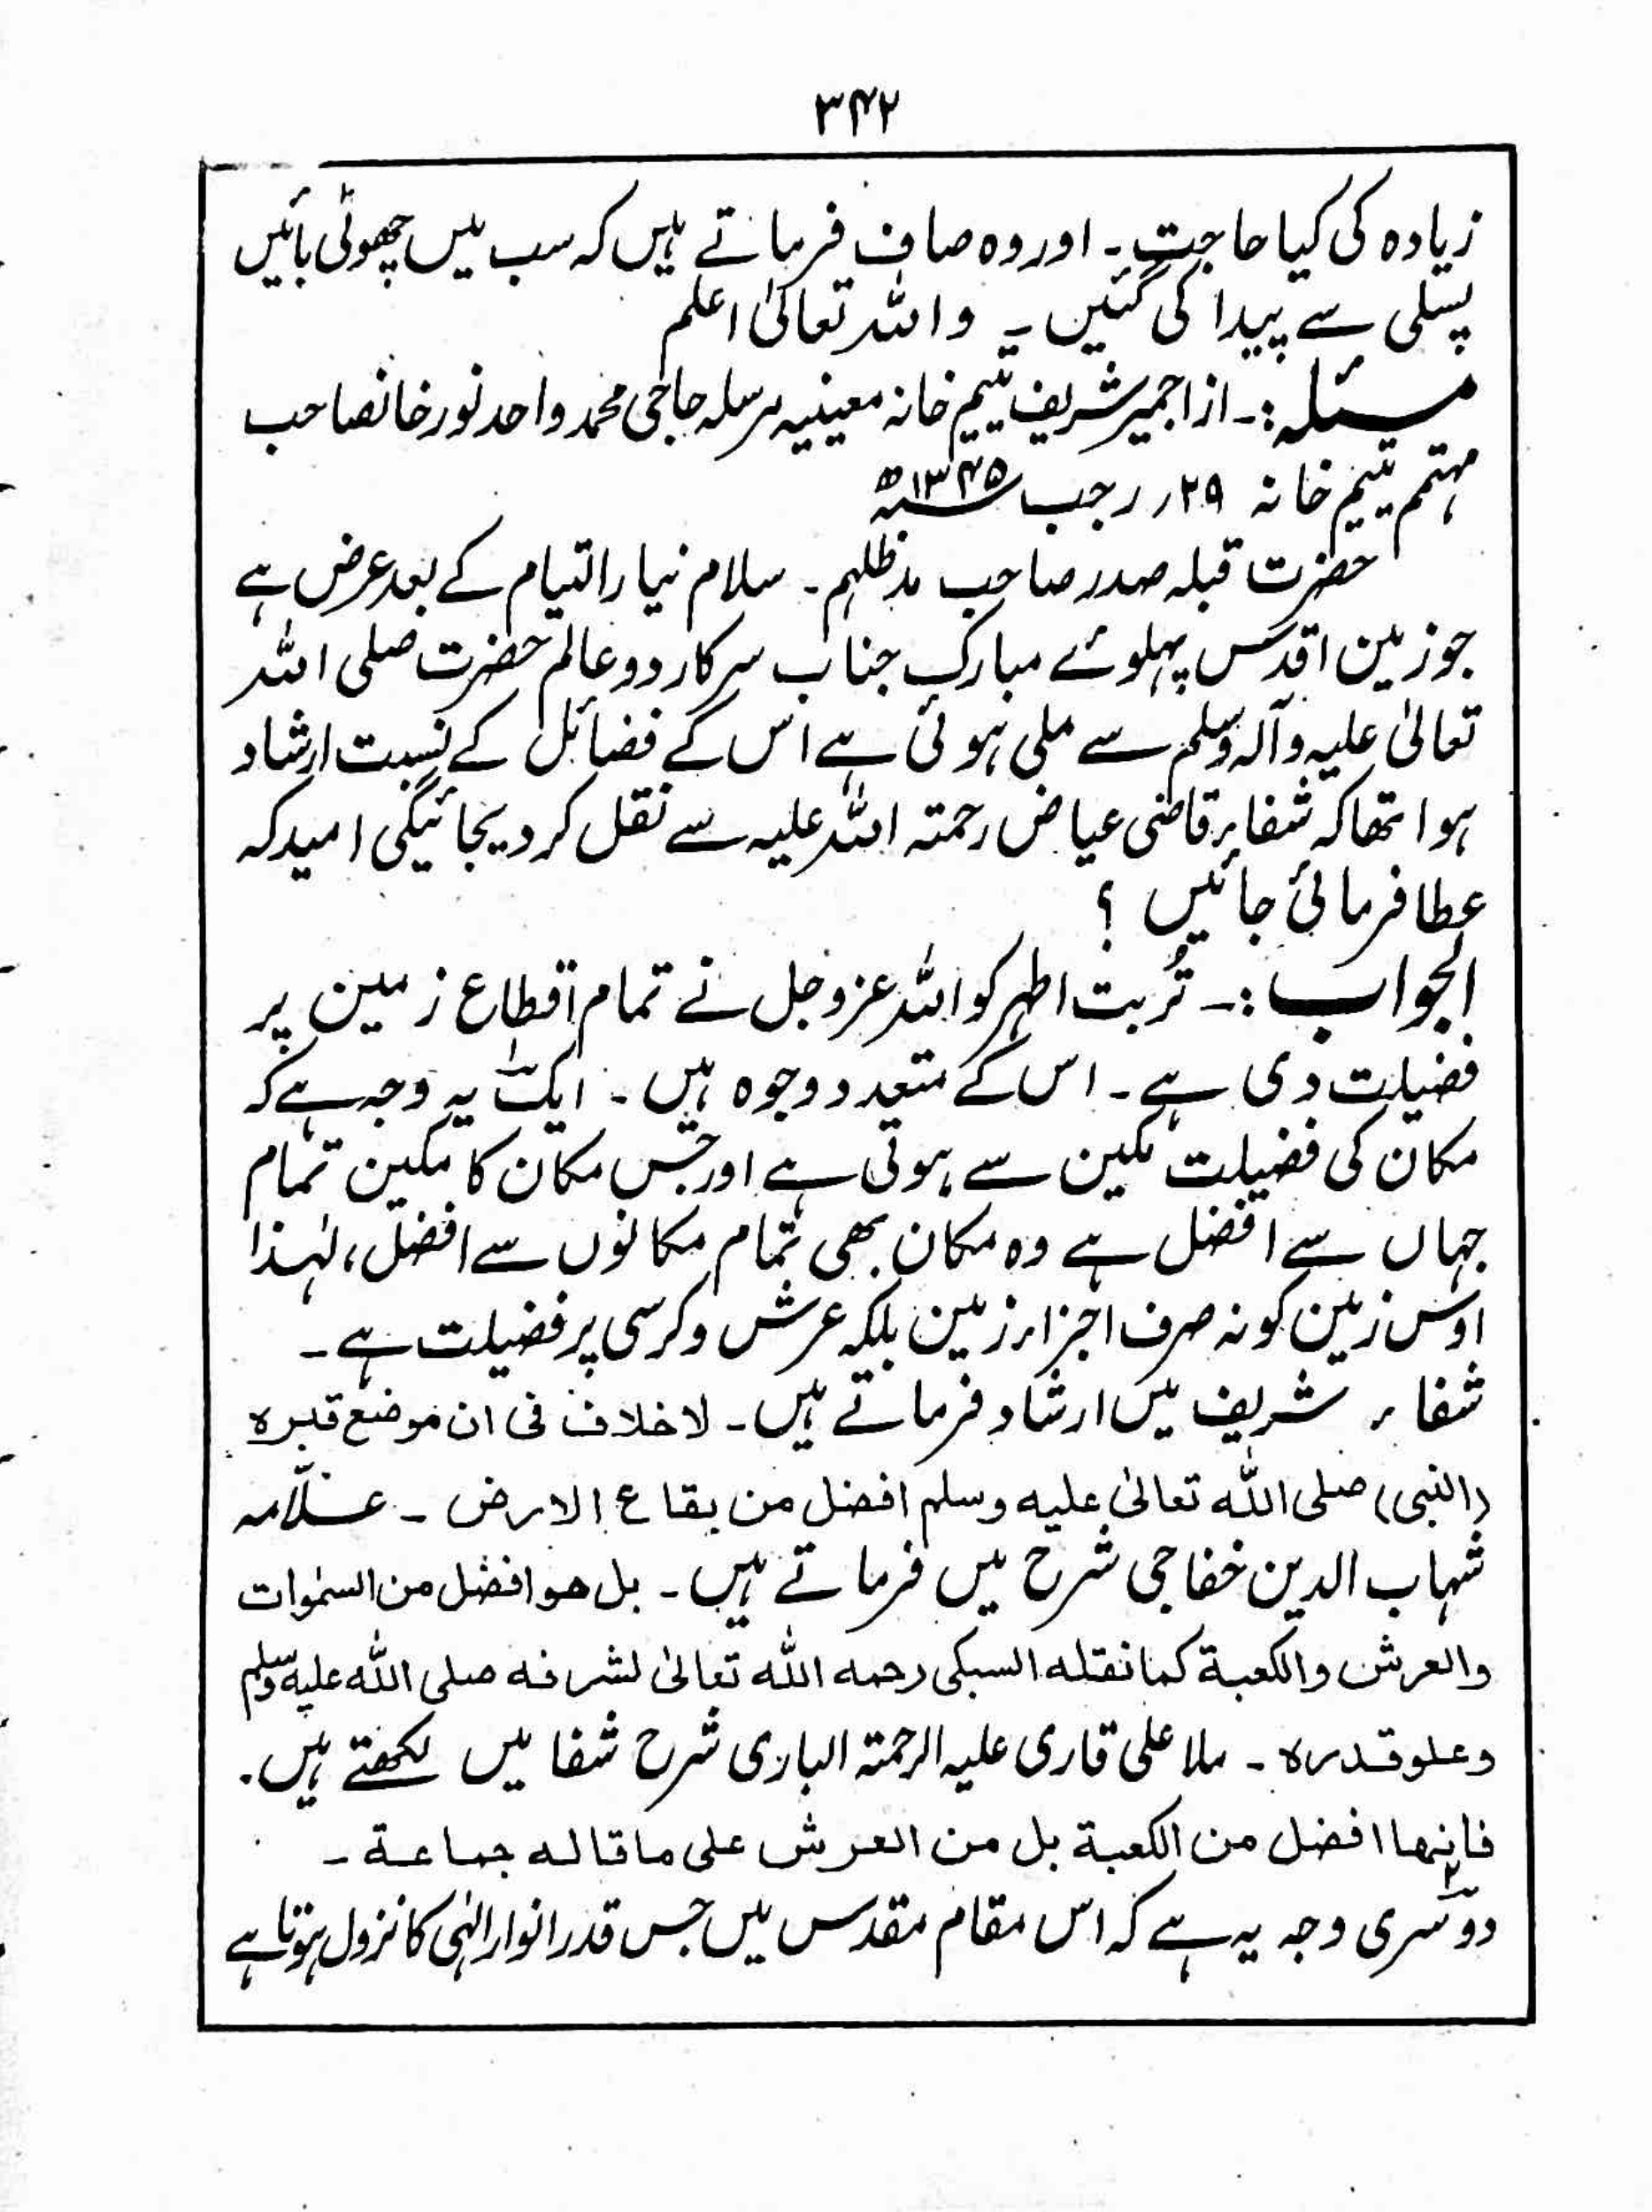 ۳۴۲
زیادہ کی کیا حاجت۔ اور وہ صاف فرماتے ہیں کہ سب میں چھوٹی بائیں
پسلی سے پیدا کی گئیں ۔ واللہ تعالیٰ اعلم
مسئلہ :۔ از اجمیر شریف یتیم خانہ معینیہ مرسلہ حاجی محمد واحد نور خانصاحب
مہتمم یتیم خانہ ۲۹ر رجب ۱۳۴۵ھ
حضرت قبلہ صدر صاحب مدظلہم۔ سلام نیاز التیام کے بعد عرض ہے
جو زمین اقدس پہلوئے مبارک جناب سرکار دو عالم حضرت صلی اللہ
تعالیٰ علیہ وآلہ وسلم سے ملی ہوئی ہے اس کے فضائل کے نسبت ارشاد
ہوا تھا کہ شفاء قاضی عیاض رحمتہ اللہ علیہ سے نقل کر دیجائیگی امید کہ
عطا فرمائی جائیں ؟
الجواب :۔ تُربت اطہر کو اللہ عز وجل نے تمام اقطاع زمین پر
فضیلت دی ہے۔ اس کے متعدد وجوہ ہیں۔ ایک یہ وجہ ہے کہ
مکان کی فضیلت مکین سے ہوتی ہے اور جس مکان کا مکین تمام
جہاں سے افضل ہے وہ مکان بھی تمام مکانوں سے افضل، لہٰذا
اوس زمین کو نہ صرف اجزاء زمین بلکہ عرش و کرسی پر فضیلت ہے۔
شفاء شریف میں ارشاد فرماتے ہیں۔ لا خلاف فی ان موضع قبرہ
(النبی) صلی اللہ تعالیٰ علیہ وسلم افضل من بقاع الارض ۔ علّامہ
شہاب الدین خفاجی شرح میں فرماتے ہیں۔ بل ھو افضل من السمٰوات
والعرش والکعبۃ کما نقلہ السبکی رحمہ اللہ تعالیٰ لشرفہ صلی اللہ علیہ وسلم
وعلو قدرہ ۔ ملا علی قاری علیہ الرحمتہ الباری شرح شفا میں لکھتے ہیں۔
فانہا افضل من الکعبۃ بل من العرش علی ما قالہ جماعۃ ۔
دوسری وجہ یہ ہے کہ اس مقام مقدس میں جس قدر انوار الٰہی کا نزول ہوتا ہے